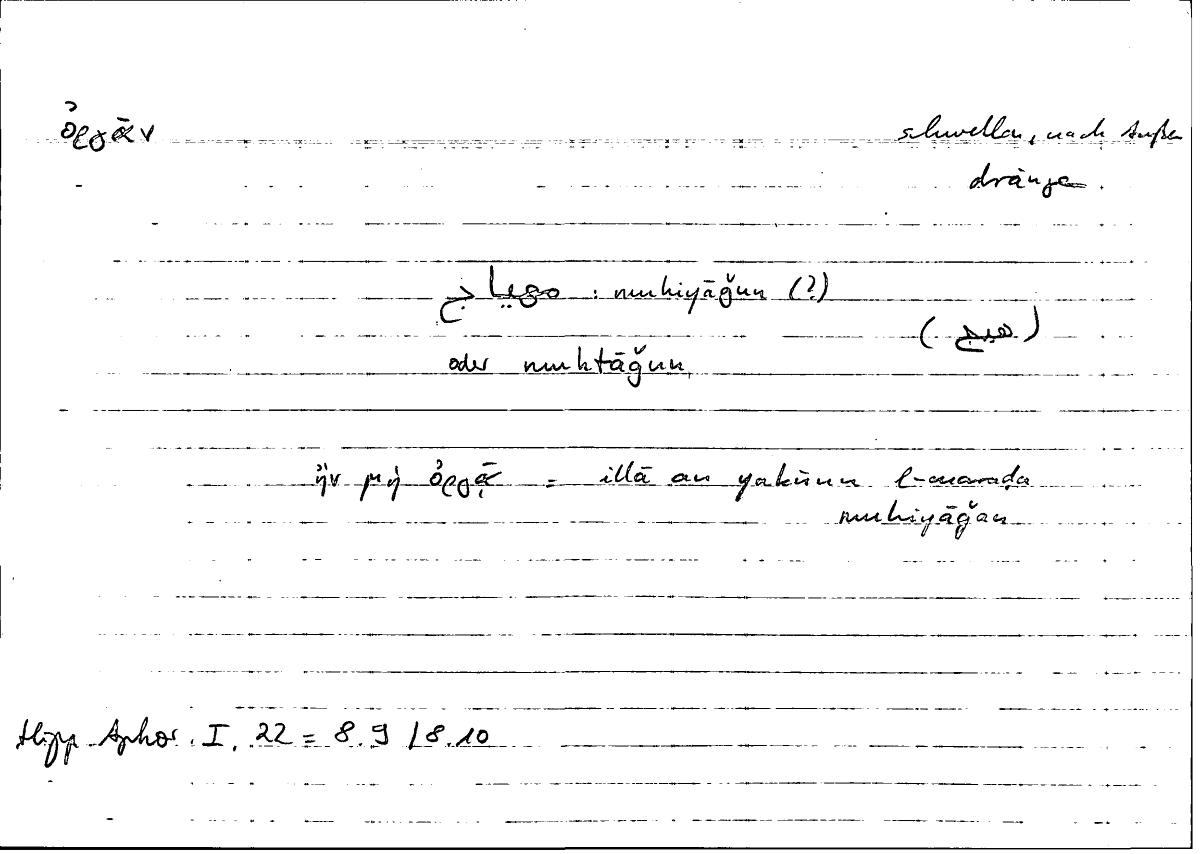 ὀργᾶν schwellen, nach Außen
drängen.
مهياج : muhiyāǧun (?)
(هيج)
oder muhtāǧun
ἢν μὴ ὀργᾷ = illā an yakūnu l-maraḍa
muhiyāǧan
Hipp Aphor. I, 22 = 8.9 / 8.10